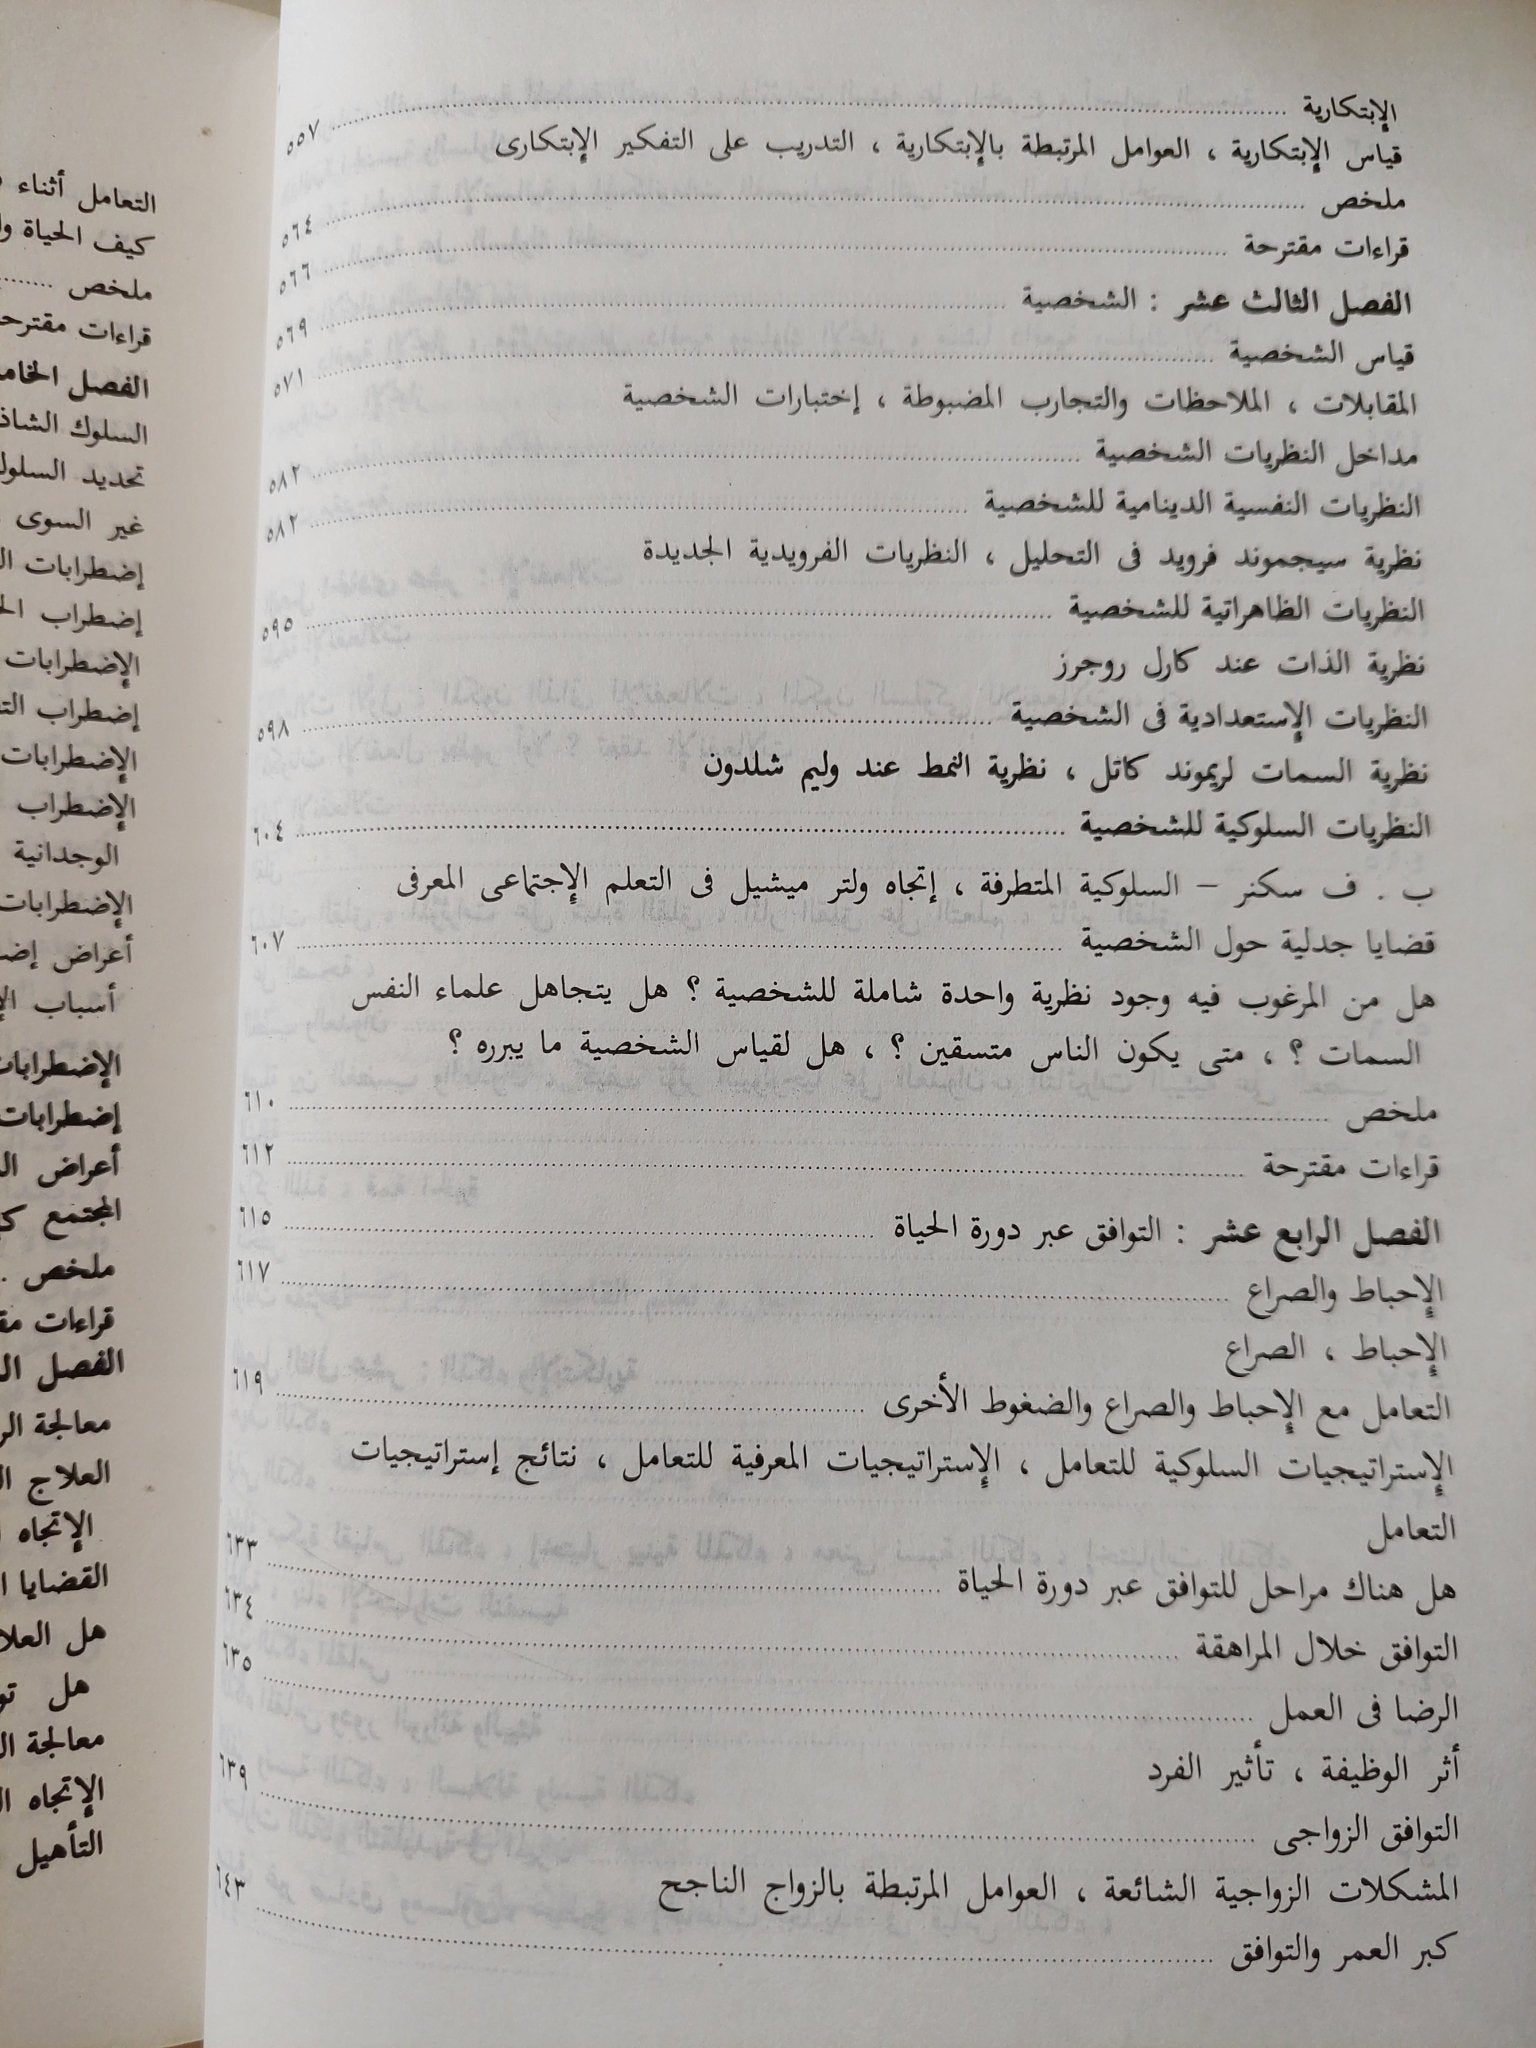 الإبتكارية ........ ٥٥٧
قياس الإبتكارية ، العوامل المرتبطة بالإبتكارية ، التدريب على التفكير الإبتكارى
ملخص ........ ٥٦٤
قراءات مقترحة ........ ٥٦٦
الفصل الثالث عشر : الشخصية ........ ٥٦٩
قياس الشخصية ........ ٥٧١
المقابلات ، الملاحظات والتجارب المضبوطة ، إختبارات الشخصية
مداخل النظريات الشخصية ........ ٥٨٢
النظريات النفسية الدينامية للشخصية ........ ٥٨٢
نظرية سيجموند فرويد فى التحليل ، النظريات الفرويدية الجديدة
النظريات الظاهراتية للشخصية ........ ٥٩٥
نظرية الذات عند كارل روجرز
النظريات الإستعدادية فى الشخصية ........ ٥٩٨
نظرية السمات لريموند كاتل ، نظرية النمط عند وليم شلدون
النظريات السلوكية للشخصية ........ ٦٠٤
ب . ف سكنر – السلوكية المتطرفة ، إتجاه ولتر ميشيل فى التعلم الإجتماعى المعرفى
قضايا جدلية حول الشخصية ........ ٦٠٧
هل من المرغوب فيه وجود نظرية واحدة شاملة للشخصية ؟ هل يتجاهل علماء النفس
السمات ؟ ، متى يكون الناس متسقين ؟ ، هل لقياس الشخصية ما يبرره ؟
ملخص ........ ٦١٠
قراءات مقترحة ........ ٦١٢
الفصل الرابع عشر : التوافق عبر دورة الحياة ........ ٦١٥
الإحباط والصراع ........ ٦١٧
الإحباط ، الصراع
التعامل مع الإحباط والصراع والضغوط الأخرى ........ ٦١٩
الإستراتيجيات السلوكية للتعامل ، الإستراتيجيات المعرفية للتعامل ، نتائج إستراتيجيات
التعامل
هل هناك مراحل للتوافق عبر دورة الحياة ........ ٦٣٣
التوافق خلال المراهقة ........ ٦٣٤
الرضا فى العمل ........ ٦٣٥
أثر الوظيفة ، تأثير الفرد
التوافق الزواجى ........ ٦٣٩
المشكلات الزواجية الشائعة ، العوامل المرتبطة بالزواج الناجح
كبر العمر والتوافق ........ ٦٤٣
التعامل أثناء
كيف الحياة
ملخص ........
قراءات مقترحة
الفصل
السلوك الشاذ
تحديد
غير السوى
إضطرابات
إضطراب
الإضطرابات
إضطراب
الإضطرابات
الإضطراب
الوجدانية
الإضطرابات
أعراض
أسباب
الإضطرابات
إضطرابات
أعراض
المجتمع
ملخص .
قراءات
الفصل
معالجة
العلاج
الإتجاه
القضايا
هل
هل
معالجة
الإتجاه
التأهيل